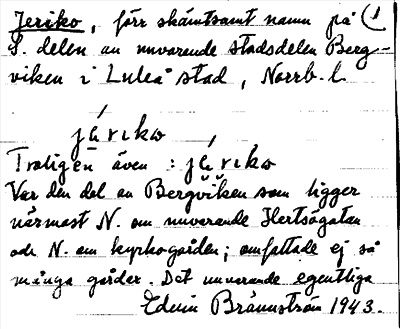 Jeriko, förr skämtsamt namn på (1
S. delen av nuvarande stadsdelen Berg-
viken i Luleå stad, Norrb. l.
járiko
Troligen även : jä́riko
Var den del av Bergviken som ligger
närmast N. om nuvarande Hertsögatan
och N. om kyrkogården; omfattade ej så
många gårder. Det nuvarande egentliga
Edvin Brännström 1943.